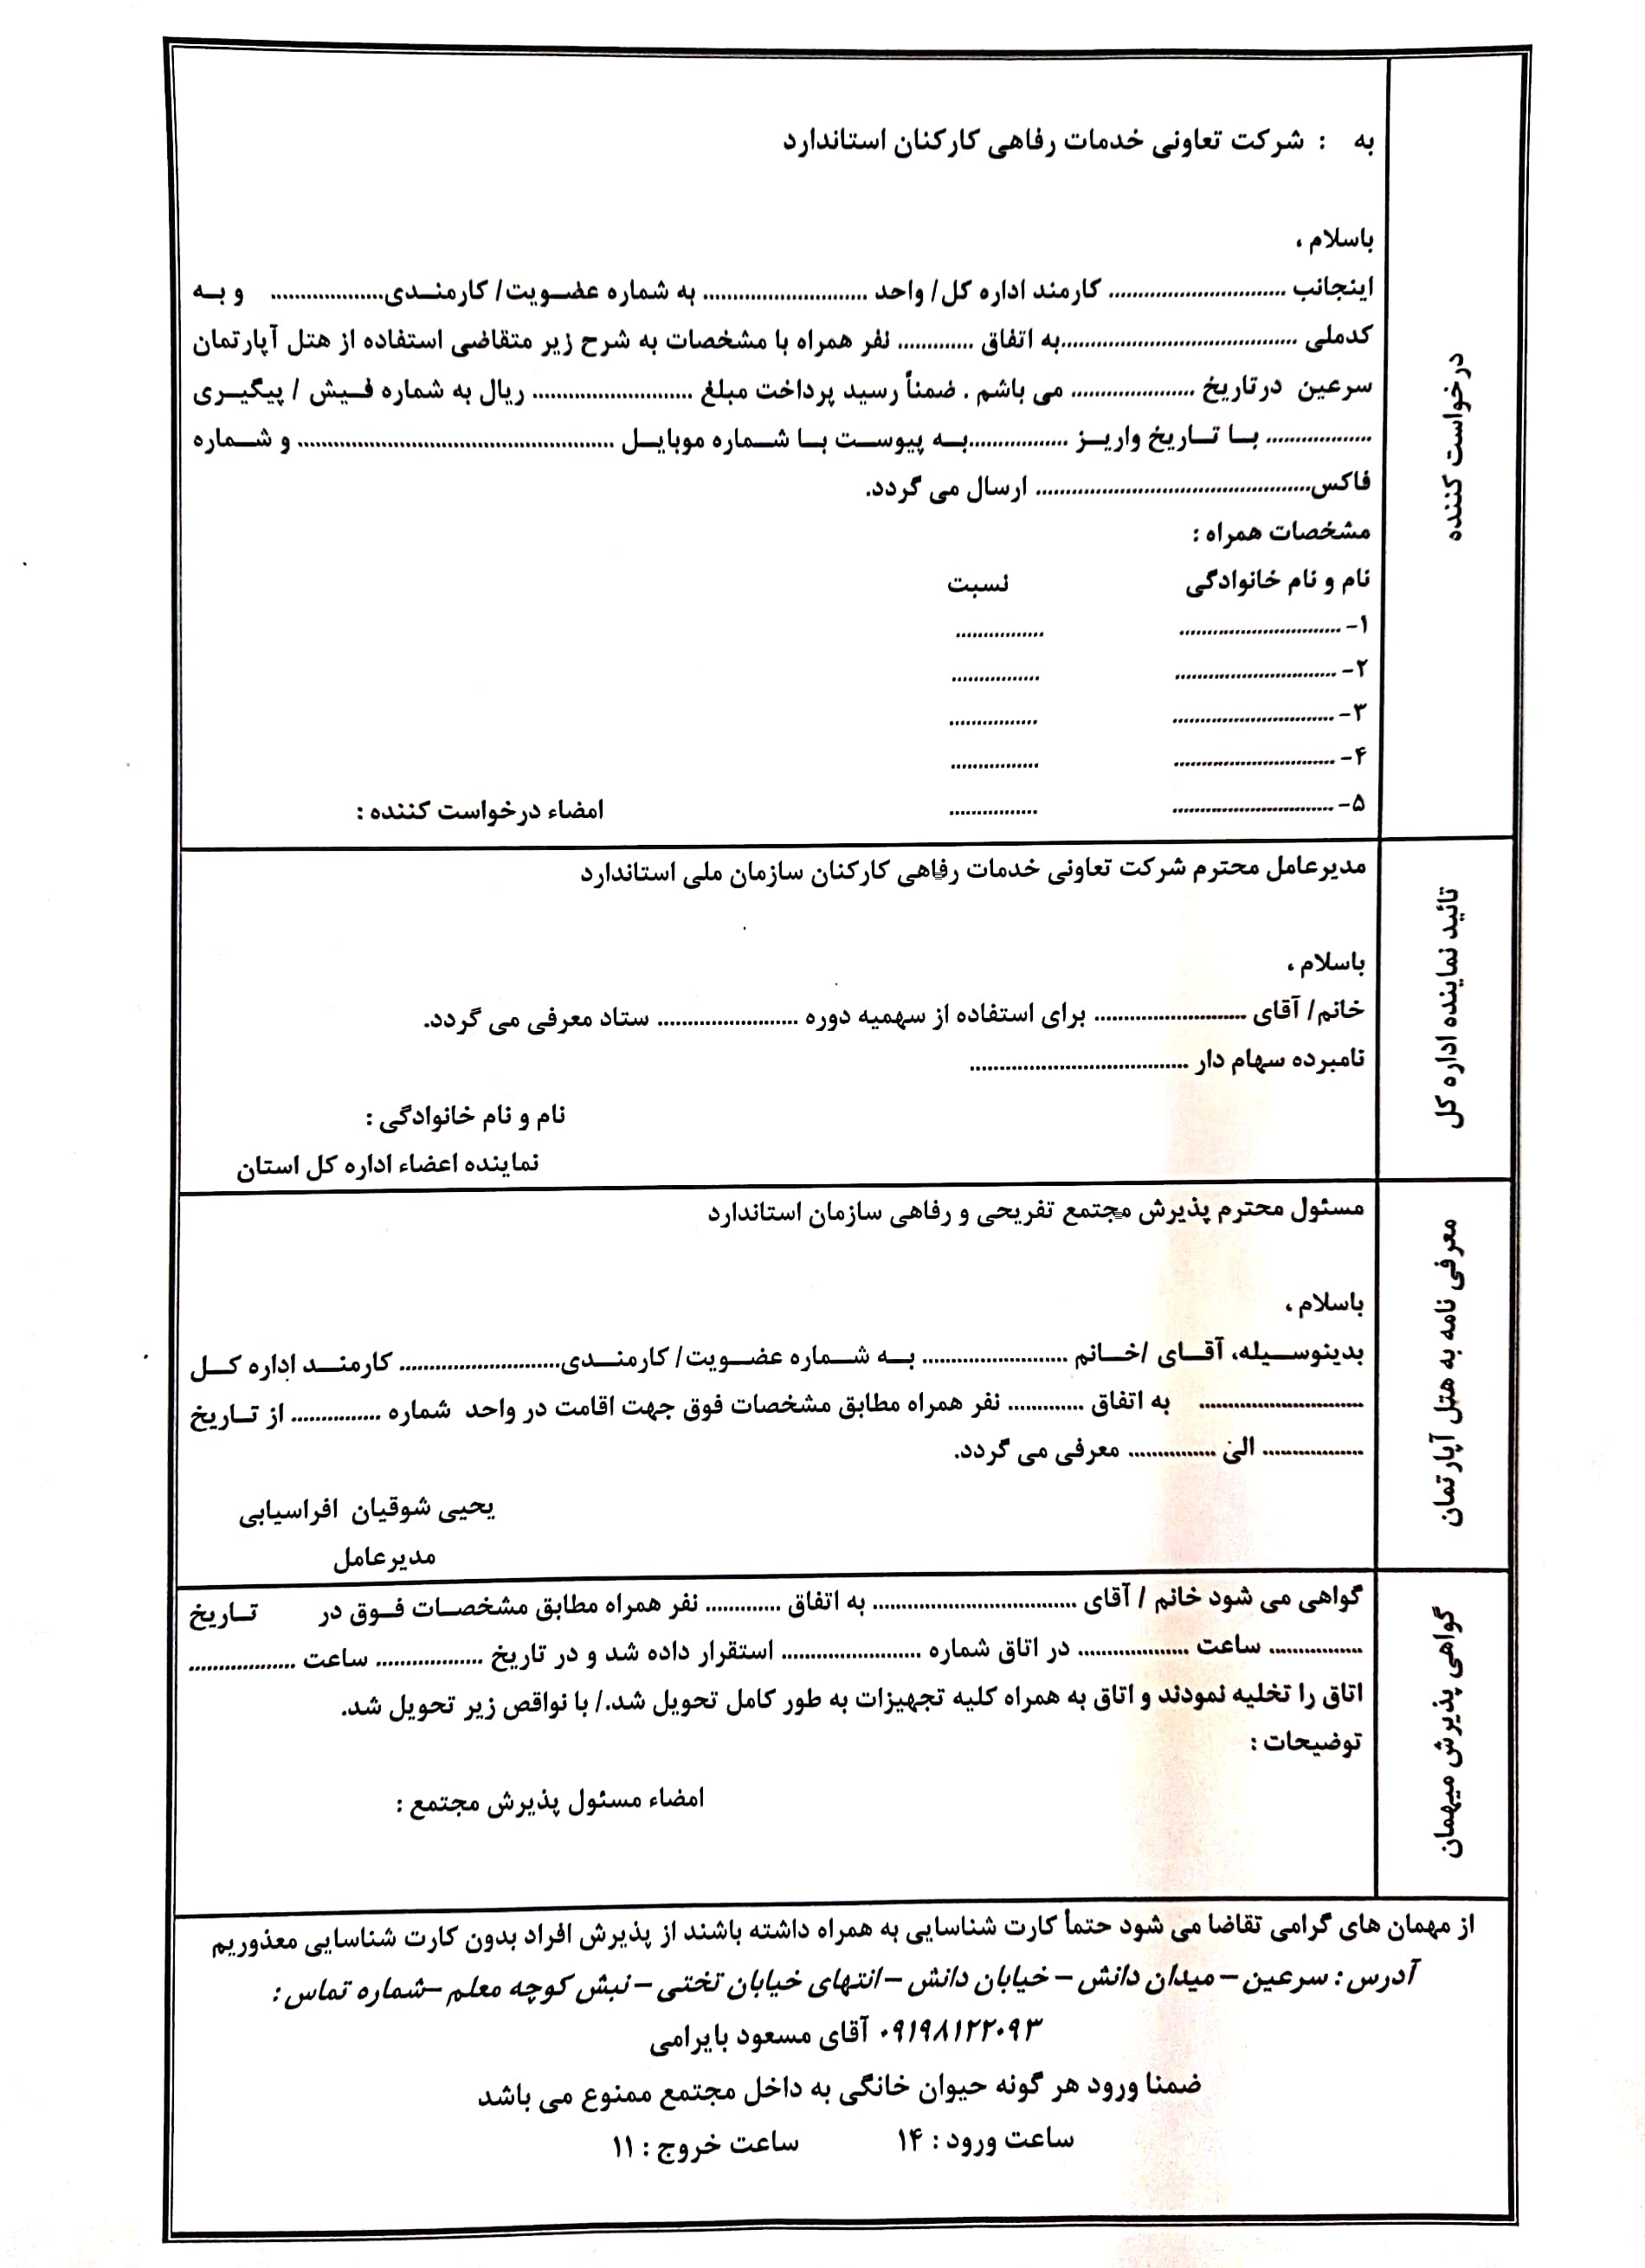 درخواست کننده
به : شرکت تعاونی خدمات رفاهی کارکنان استاندارد
باسلام ،
اینجانب .............................. کارمند اداره کل/ واحد ............................ به شماره عضـویت/ کارمنـدی................... و بـه
کدملی ........................................به اتفاق ............. نفر همراه با مشخصات به شرح زیر متقاضی استفاده از هتل آپارتمان
سرعین درتاریخ ..................... می باشم . ضمناً رسید پرداخت مبلغ ........................... ریال به شماره فـیش / پیگیـری
.................. بـا تـاریخ واریـز .................بـه پیوسـت بـا شـماره موبایـل ...................................................... و شـماره
فاکس............................................... ارسال می گردد.
مشخصات همراه :
نام و نام خانوادگی نسبت
۱- ............................. ................
۲- ............................. ................
۳- ............................. ................
۴- ............................. ................
۵- ............................. ................ امضاء درخواست کننده :
تائید نماینده اداره کل
مدیرعامل محترم شرکت تعاونی خدمات رفاهی کارکنان سازمان ملی استاندارد
باسلام ،
خانم/ آقای .......................... برای استفاده از سهمیه دوره ........................ ستاد معرفی می گردد.
نامبرده سهام دار .....................................
نام و نام خانوادگی :
نماینده اعضاء اداره کل استان
معرفی نامه به هتل آپارتمان
مسئول محترم پذیرش مجتمع تفریحی و رفاهی سازمان استاندارد
باسلام ،
بدینوسـیله، آقـای /خـانم ......................... بـه شـماره عضـویت/ کارمنـدی........................... کارمنـد اداره کـل
............................ به اتفاق ............. نفر همراه مطابق مشخصات فوق جهت اقامت در واحد شماره ............... از تـاریخ
................. الی ............... معرفی می گردد.
یحیی شوقیان افراسیابی
مدیرعامل
گواهی پذیرش میهمان
گواهی می شود خانم / آقای ................................... به اتفاق ............. نفر همراه مطابق مشخصـات فـوق در تـاریخ
................ ساعت ................... در اتاق شماره ........................ استقرار داده شد و در تاریخ .................. ساعت ..................
اتاق را تخلیه نمودند و اتاق به همراه کلیه تجهیزات به طور کامل تحویل شد./ با نواقص زیر تحویل شد.
توضیحات :
امضاء مسئول پذیرش مجتمع :
از مهمان های گرامی تقاضا می شود حتماً کارت شناسایی به همراه داشته باشند از پذیرش افراد بدون کارت شناسایی معذوریم
آدرس : سرعین – میدان دانش – خیابان دانش –انتهای خیابان تختی – نبش کوچه معلم –شماره تماس :
۰۹۱۹۸۱۲۲۰۹۳ آقای مسعود بایرامی
ضمنا ورود هر گونه حیوان خانگی به داخل مجتمع ممنوع می باشد
ساعت ورود : ۱۴ ساعت خروج : ۱۱